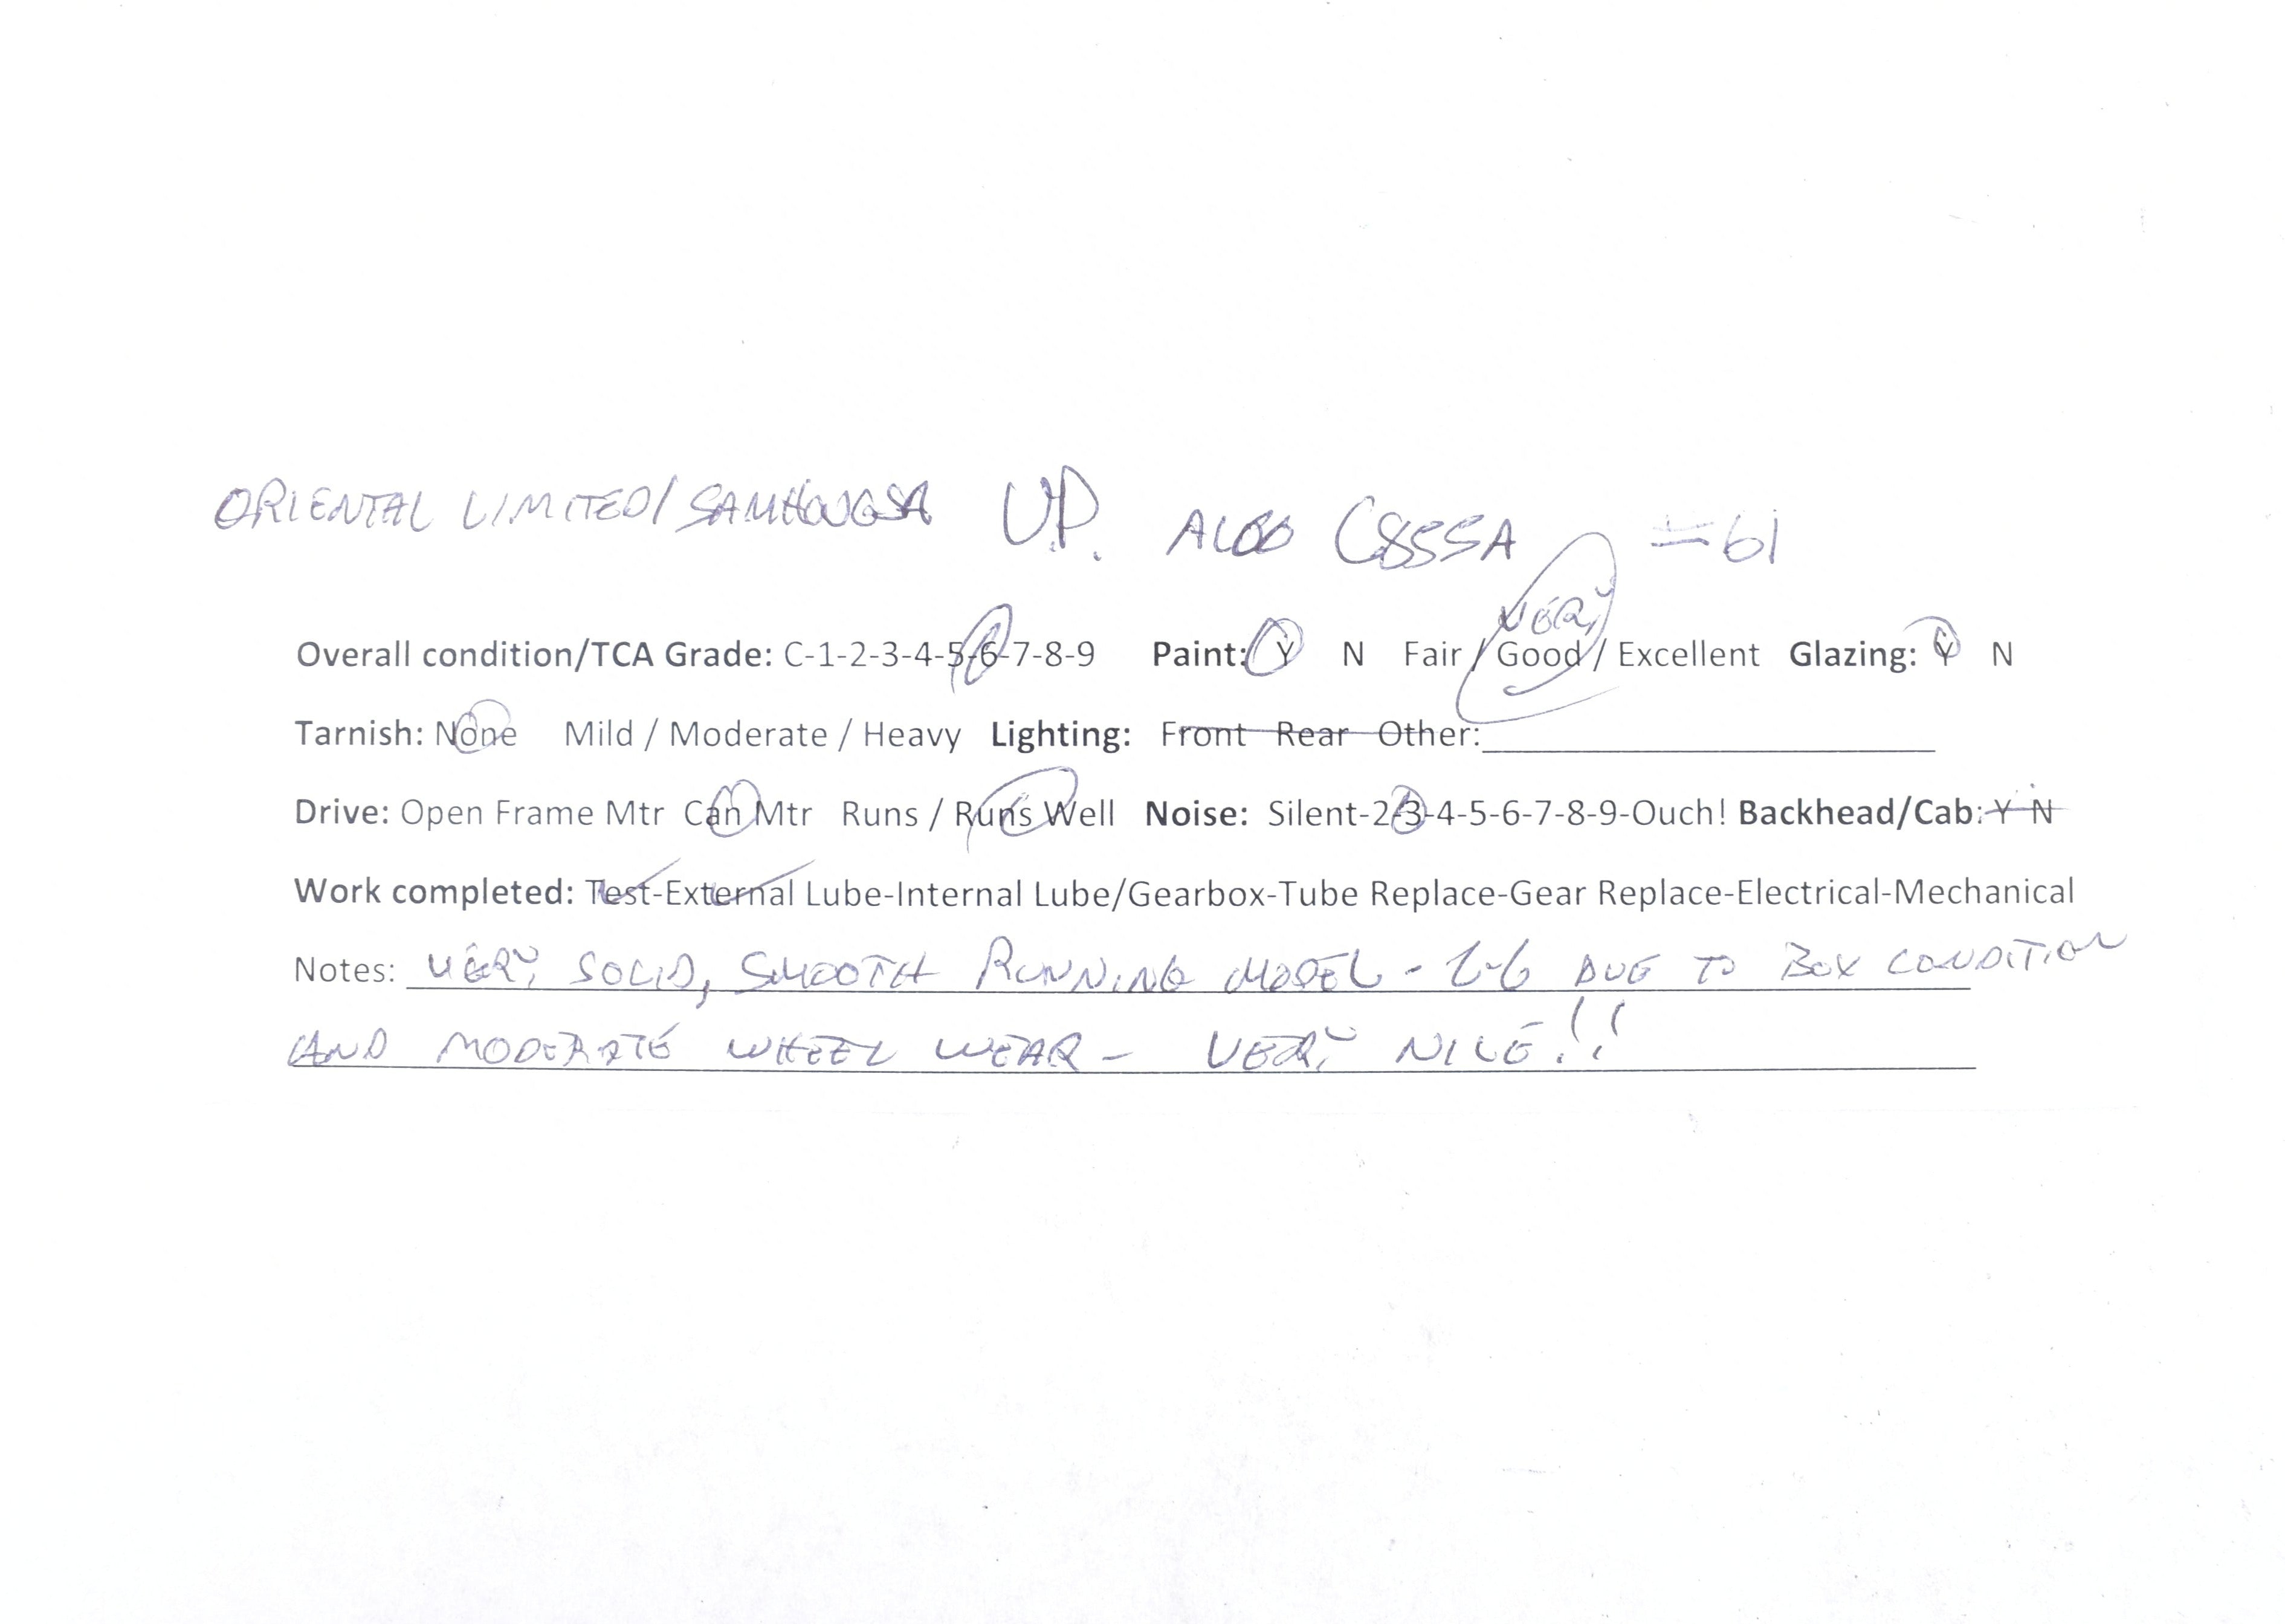 ORIENTAL LIMITED/SAMHONGSA U.P. ALCO C855A #61
VERY
Overall condition/TCA Grade: C-1-2-3-4-5-6-7-8-9 Paint: Y N Fair / Good / Excellent Glazing: Y N
Tarnish: None Mild / Moderate / Heavy Lighting: Front Rear Other:
Drive: Open Frame Mtr Can Mtr Runs / Runs Well Noise: Silent-2-3-4-5-6-7-8-9-Ouch! Backhead/Cab: Y N
Work completed: Test-External Lube-Internal Lube/Gearbox-Tube Replace-Gear Replace-Electrical-Mechanical
Notes: VERY SOLID, SMOOTH RUNNING MODEL - C-6 DUE TO BOX CONDITION
AND MODERATE WHEEL WEAR - VERY NICE!!